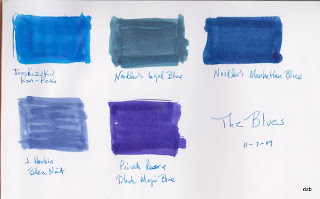 Iroshizuku
Kon-Peki
Noodler's Legal Blue
Noodler's Manhattan Blue
J. Herbin
Bleu Nuit
Private Reserve
Black Magic Blue
The Blues
11-7-09
dsb